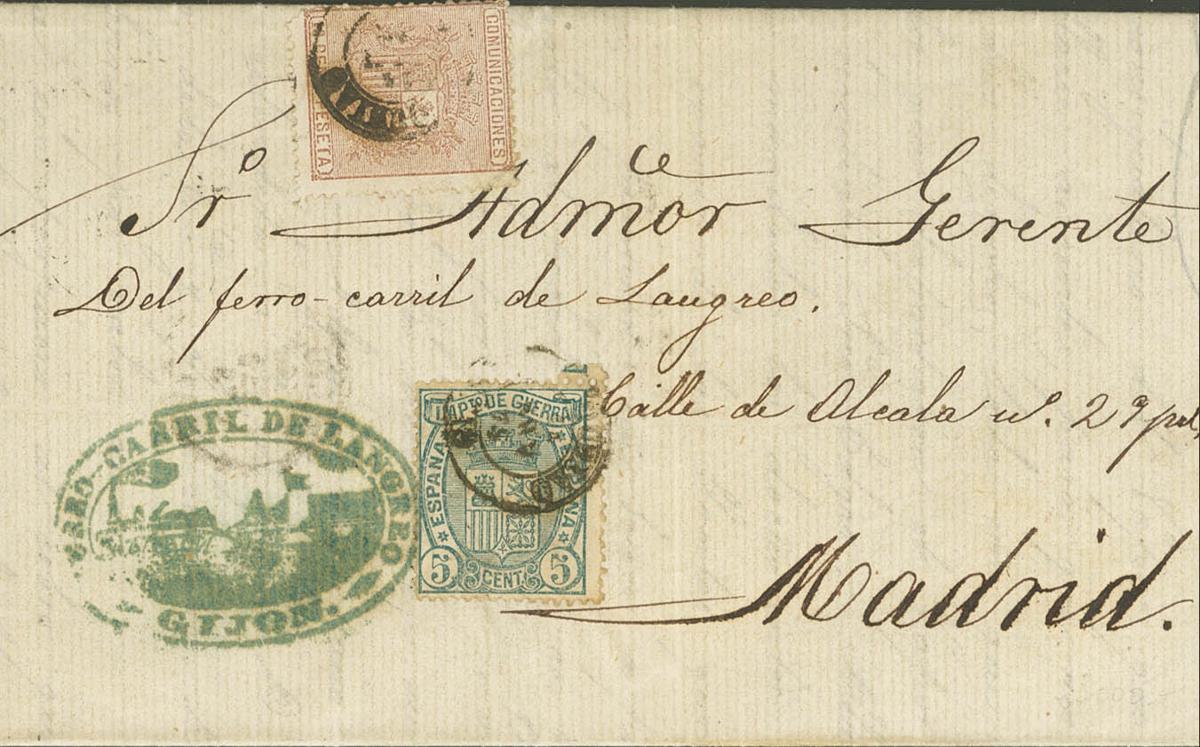 COMUNICACIONES
PESETA
Sr. Admor Gerente
Del ferro-carril de Langreo.
IMPTO DE GUERRA
ESPAÑA
5 CENT. 5
Calle de Alcala nº. 29
FERRO-CARRIL DE LANGREO
GIJON.
Madrid.